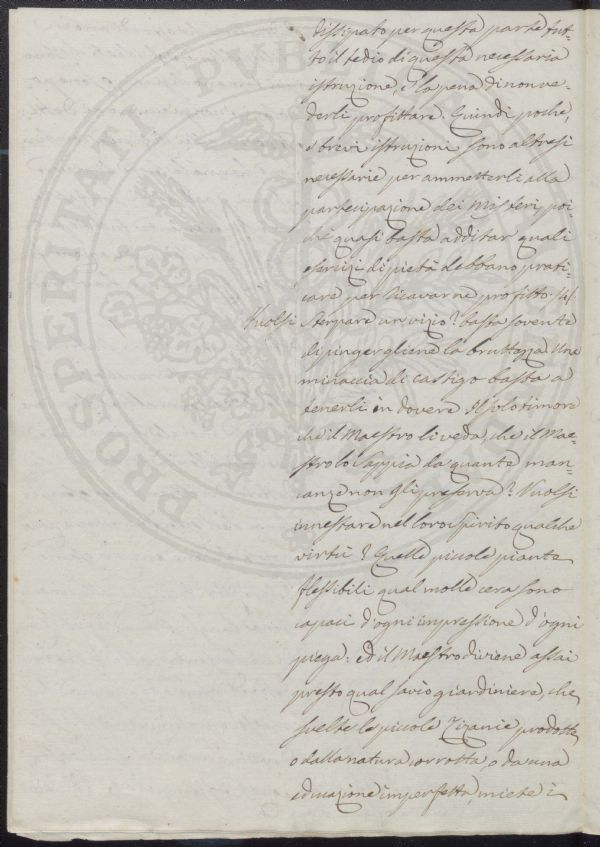 dissipato per questa parte tut-
to il tedio di questa necessaria
istruzione, e la pena di non ve-
derli profittare. Quindi poche,
e brevi istruzioni sono altresì
necessarie per ammetterli alla
partecipazione dei Misteri, poi-
chè quasi basta additar quali
esercizi di pietà debbano prati-
care per ricavarne profitto.
Vuolsi
sterpare un vizio? basta sovente
dipingergliene la bruttezza. Una
minaccia di castigo basta a
tenerli in dovere. Il solo timore
che il Maestro li veda, che il Mae-
stro lo sappia da quante man-
canze non gli preserva? Vuolsi
innestare nel loro spirito qualche
virtù? Quelle piccole piante
flessibili qual molle cera sono
capaci d'ogni impressione d'ogni
piega: ed il Maestro diviene assai
presto qual savio giardiniere, che
svelte le piccole Zizanie prodotte
o dalla natura corrotta, o da una
educazione imperfetta, miete i
PROSPERITATI PVBLICAE